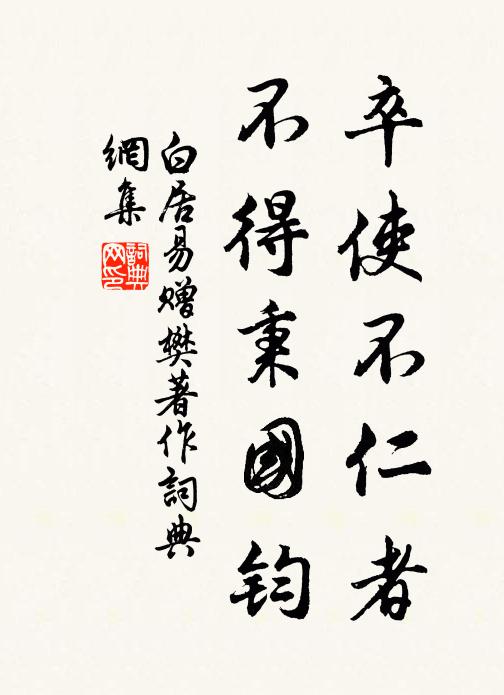 卒使不仁者
不得秉國鈞
白居易贈樊著作詞典
網集
詞典
网印